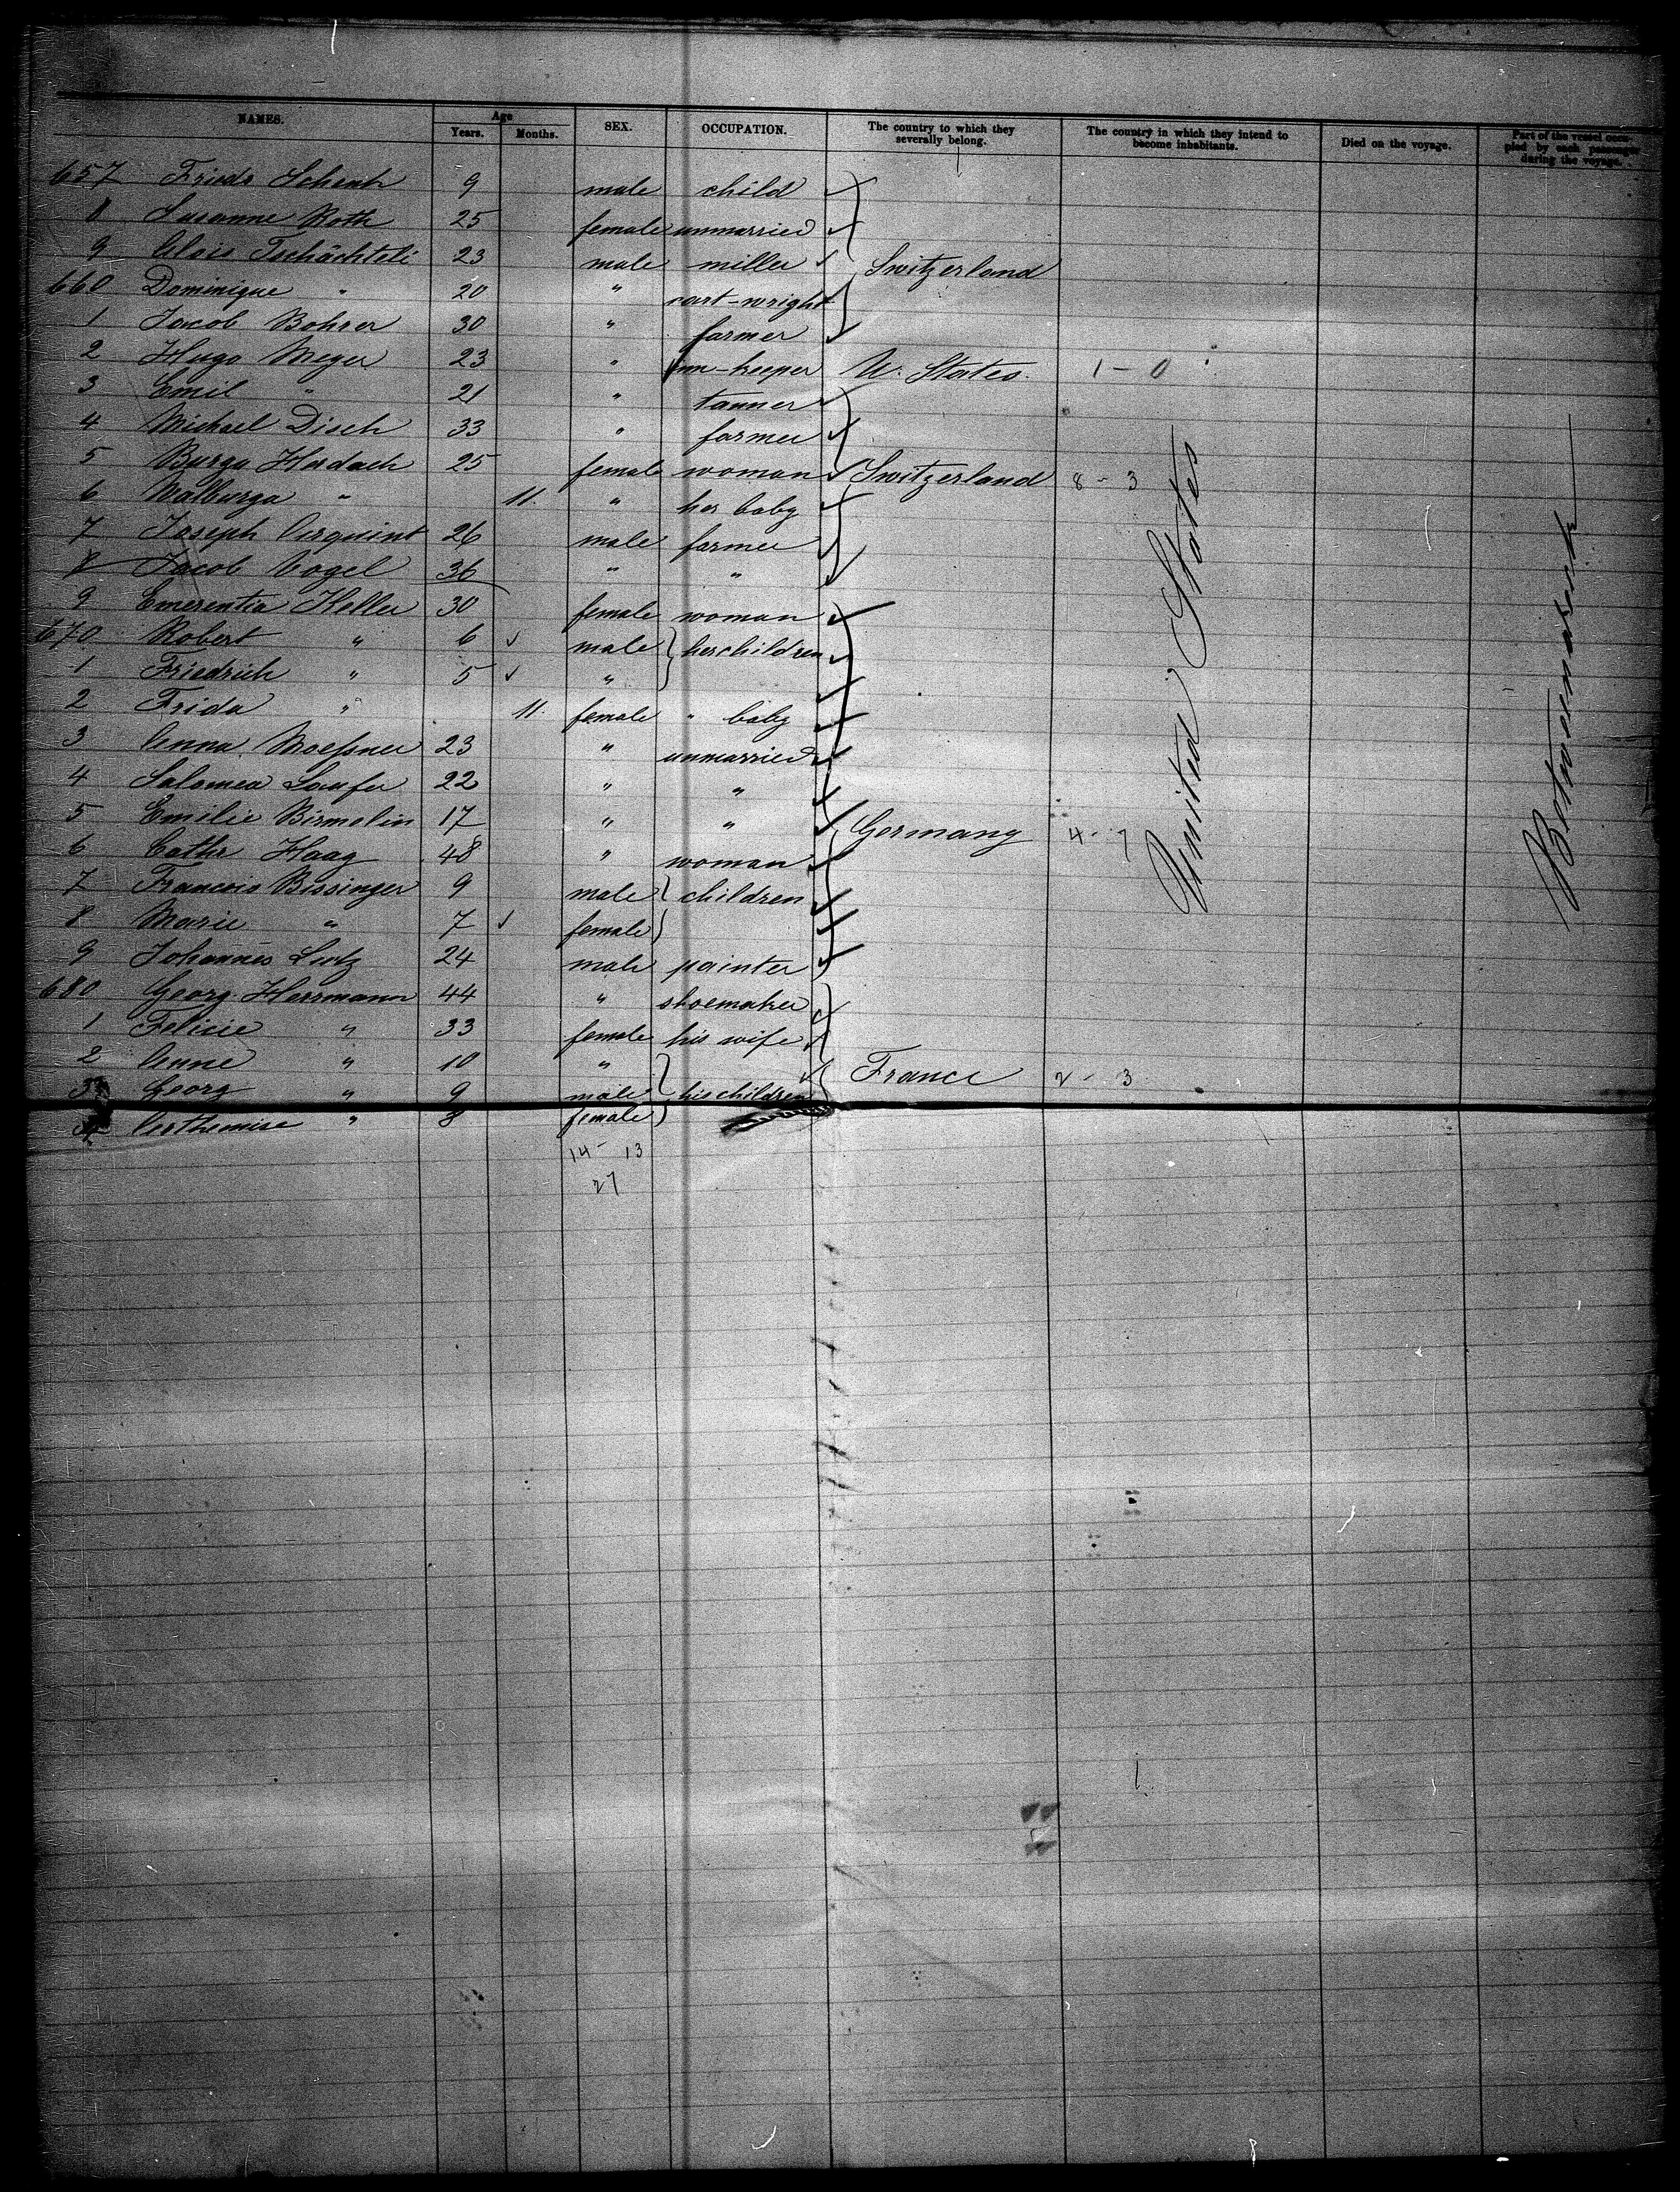 NAMES. Age Years. Months. SEX. OCCUPATION. The country to which they severally belong. The country in which they intend to become inhabitants. Died on the voyage. Part of the vessel occupied by each passenger during the voyage.
657 Friedr Schenk 9 male child
8 Susanne Roth 25 female unmarried
9 Alois Tschächteli 23 male miller Switzerland
660 Dominique " 20 " cart-wright
1 Jacob Bohrer 30 " farmer
2 Hugo Meyer 23 " inn-keeper U. States. 1 - 0
3 Emil " 21 " tanner
4 Michael Disch 33 " farmer
5 Burga 25 female woman Switzerland 8 - 3
6 Walburga " 11. " her baby
7 Joseph 26 male farmer
8 Jacob Vogel 36 " "
9 Emerentia Keller 30 female woman
670 Robert " 6 male her children
1 Friedrich " 5 "
2 Frida " 11. female " baby
3 Anna Moeßner 23 " unmarried
4 Salomea Laufer 22 " "
5 Emilie Birmelin 17 " " Germany 4 - 7
6 Cathr Haag 48 " woman
7 Francois Bissinger 9 male children
8 Marie " 7 female
9 Johannes Lutz 24 male painter
680 Georg Herrmann 44 " shoemaker
1 Felicie " 33 female his wife
2 Anne " 10 " France 2 - 3
3 Georg " 9 male his children
4 Arthemise " 8 female
14 - 13
27
United States
Betweendeck